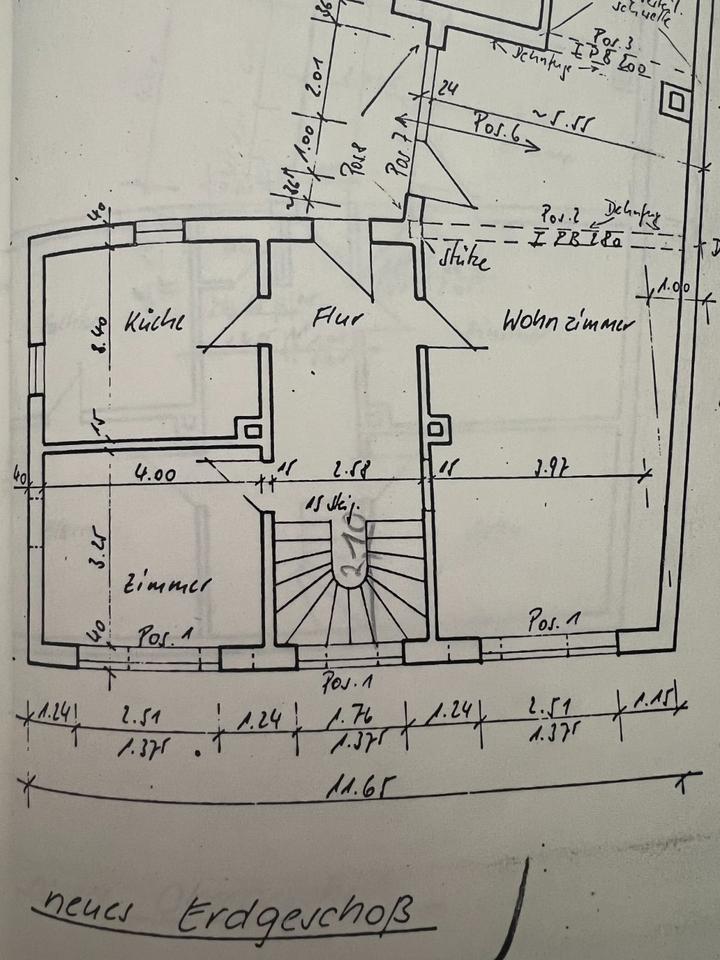 schwelle
Pos. 3
I PB 200
Dehnfuge
2.01
24
~5.55
Pos. 6
1.00
Pos 8
Pos. 7
40
Pos. 2
Dehnfug
I PB 280
Stütze
1.00
Küche
Flur
Wohnzimmer
8.40
15
40
4.00
15
2.58
15
3.97
15 Stg.
2.10
3.25
Zimmer
40
Pos. 1
Pos. 1
Pos. 1
1.24
2.51
1.24
1.76
1.24
2.51
1.15
1.375
1.375
1.375
11.65
neues Erdgeschoß